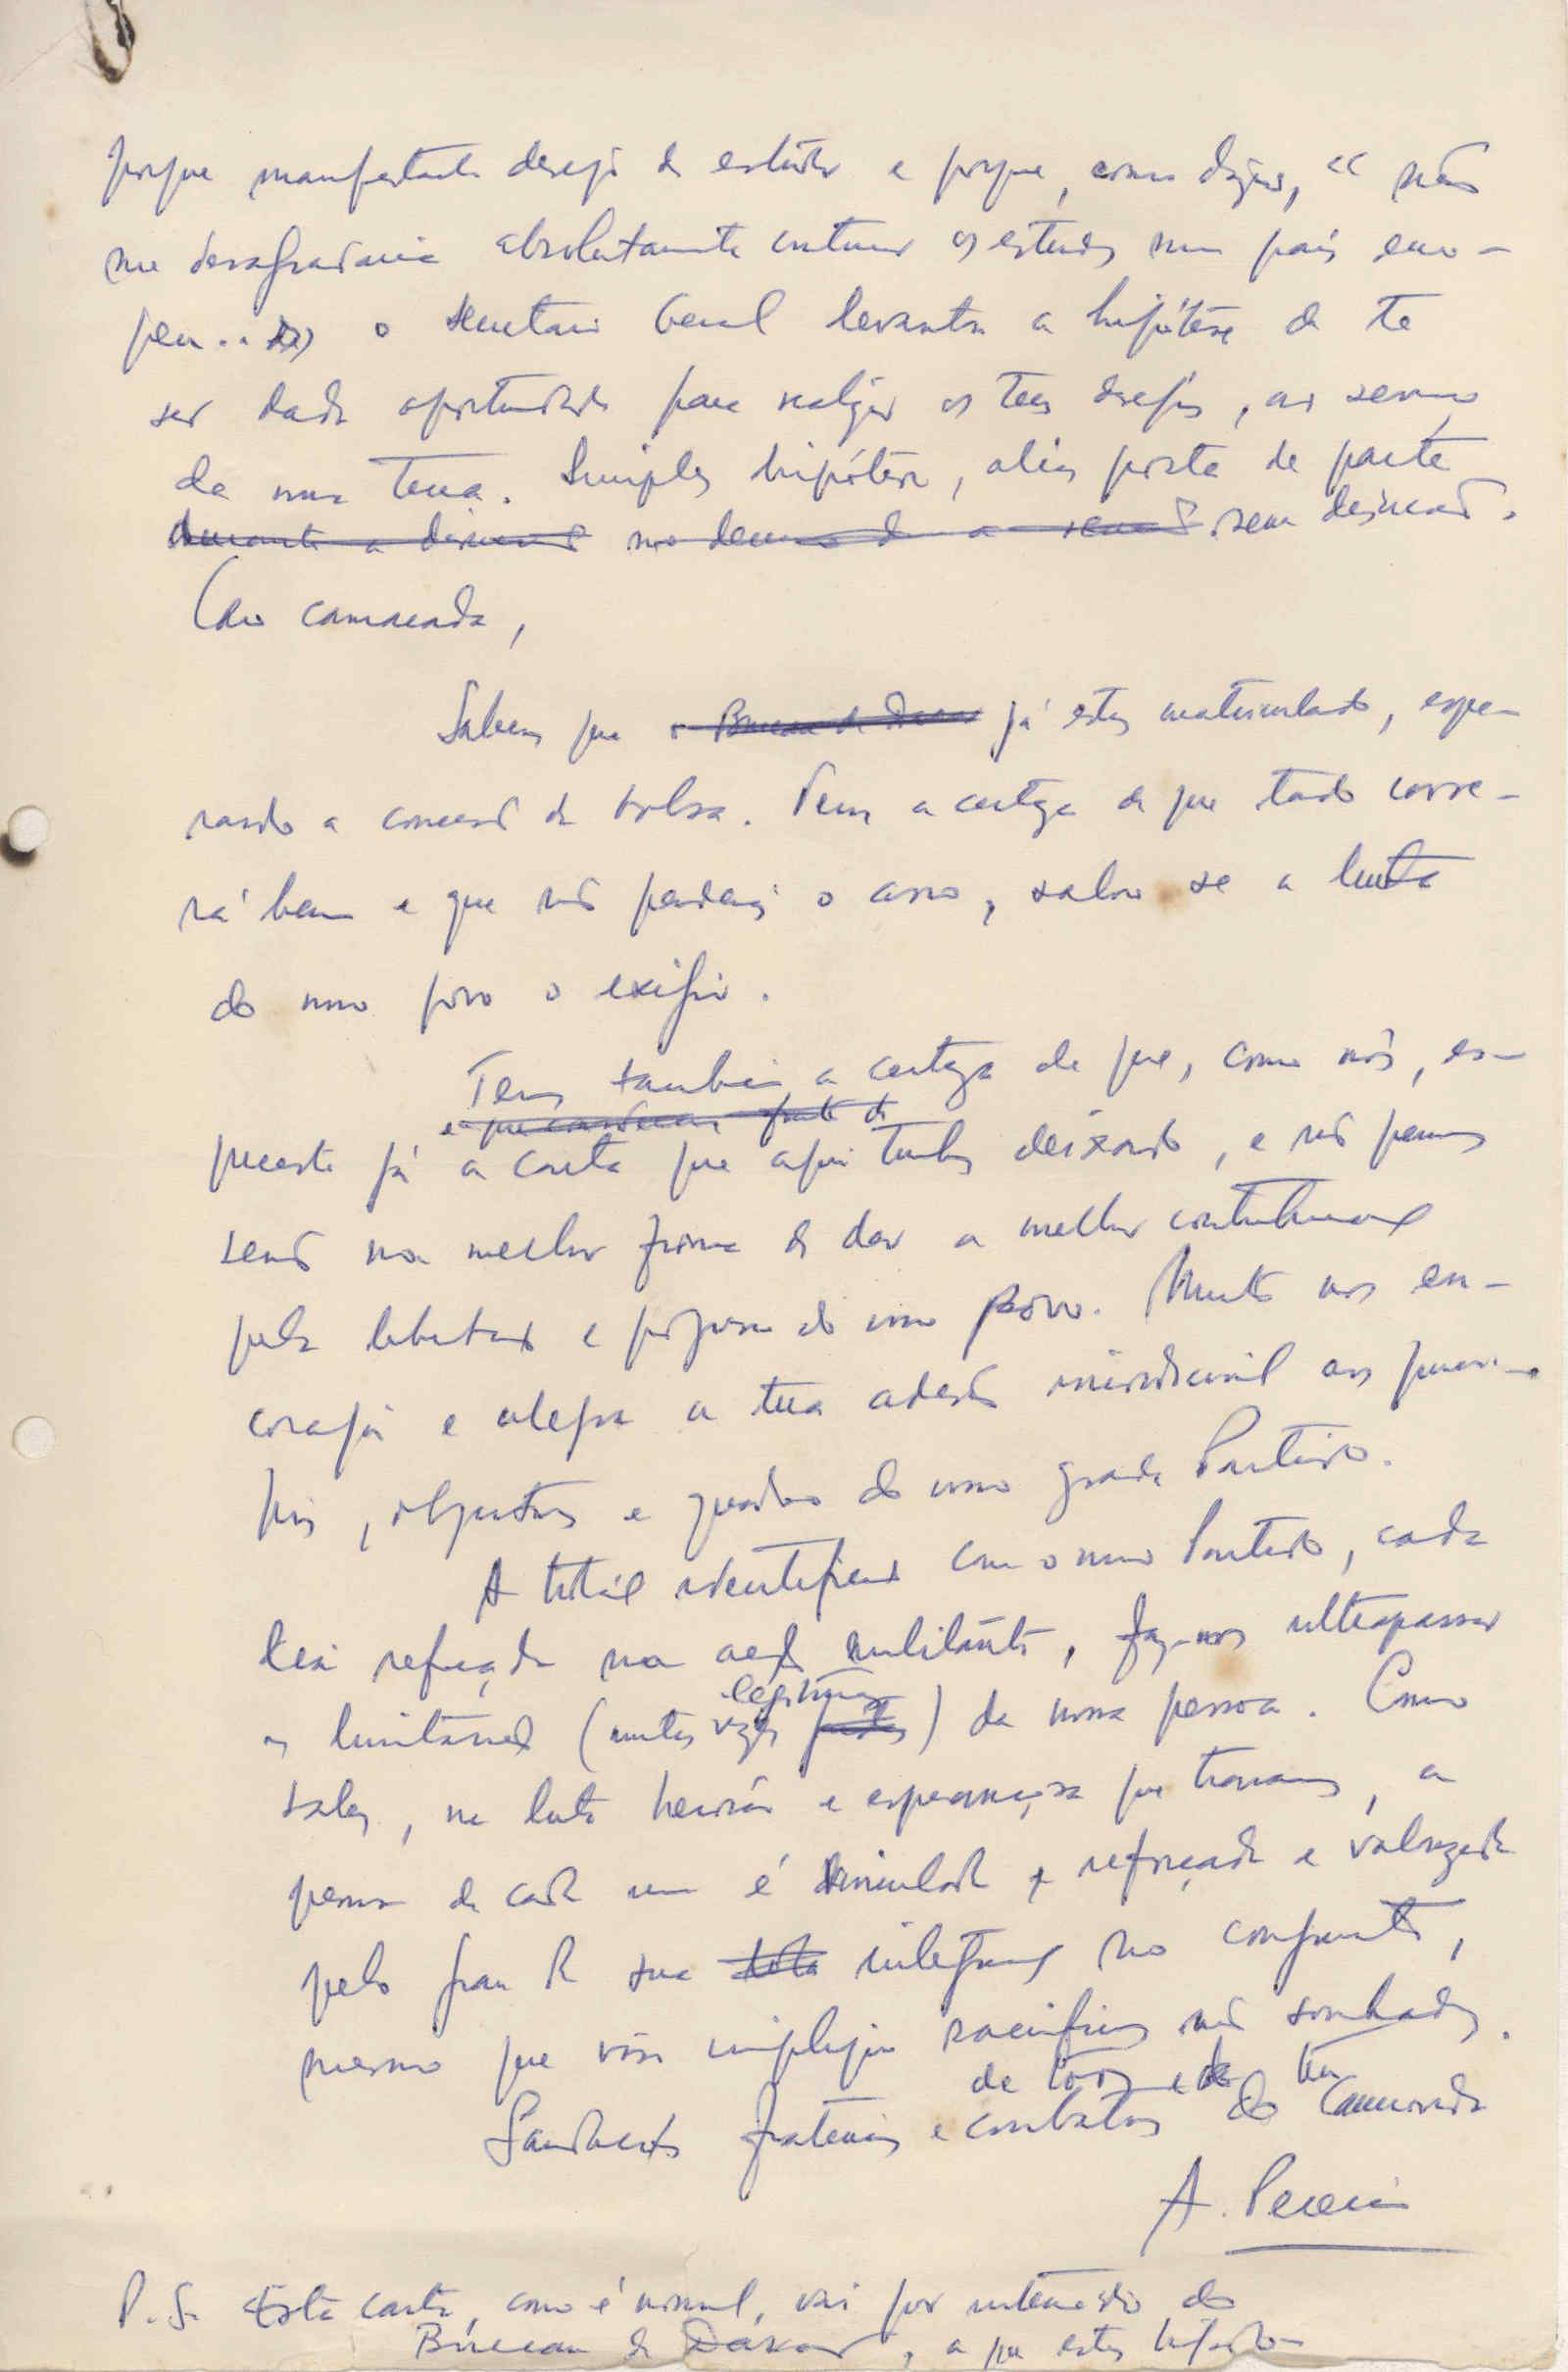 porque manifestaste desejo de estudar e porque, como dizes, "não
me desagradaria absolutamente continuar os estudos num país euro-
peu..." o Secretário Geral levantou a hipótese de te
ser dada oportunidade para realizar os teus desejos, ao serviço
da nossa terra. Simples hipótese, aliás posta de parte
sem discussão.
Caro camarada,
Sabemos que já estás matriculado, espe-
rando a concessão da bolsa. Temos a certeza de que tudo corre-
rá bem e que não perderás o ano, salvo se a luta
do nosso povo o exigir.
Temos também a certeza de que, como nós, es-
queceste já a carta que aqui tinhas deixado, e não pensas
senão na melhor forma de dar a melhor contribuição
pela libertação e progresso do nosso povo. Muito nos en-
coraja e alegra a tua adesão incondicional aos princí-
pios, objectivos e do nosso grande Partido.
A total identificação com o nosso Partido, cada
dia reforçada na acção militante, faz-nos ultrapassar
as limitações (muitas vezes legítimas) da nossa pessoa. Como
sabes, na luta heróica e esperançosa que travamos, a
pessoa de cada um é reforçada e valorizada
pelo grau da sua integração no conjunto,
mesmo que isso implique sacrifícios não sonhados.
de todos e do teu
Saudações fraternais e combativas do Camarada
A. Pereira
P.S. Esta carta, como é normal, vai por intermédio do
Bureau de Dakar, a que estás